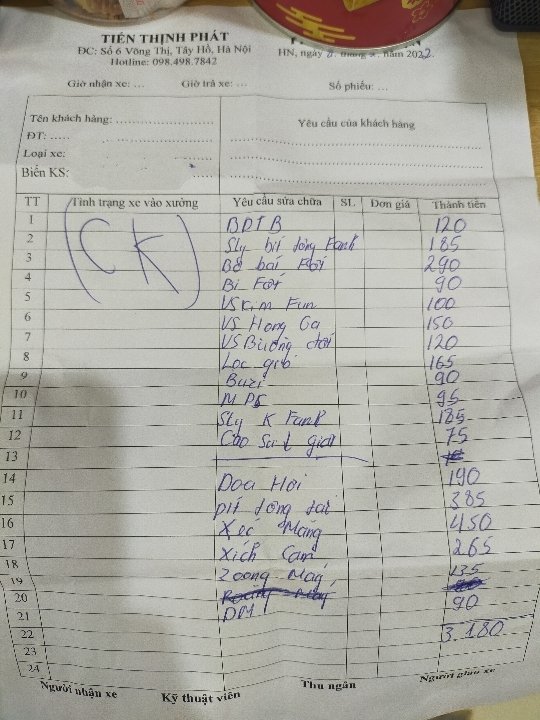 TIẾN THỊNH PHÁT
ĐC: Số 6 Võng Thị, Tây Hồ, Hà Nội
Hotline: 098.498.7842
HN, ngày tháng năm 2022
Giờ nhận xe: ... Giờ trả xe: ... Số phiếu: ...
Tên khách hàng: Yêu cầu của khách hàng
ĐT:
Loại xe:
Biển KS:
TT Tình trạng xe vào xưởng Yêu cầu sửa chữa SL Đơn giá Thành tiền
(CK)
1 BDTB 120
2 Sly bít dòng Fanh 185
3 290
4 Bi 90
5 VS Kim Fun 100
6 VS Hong Ga 150
7 VS Buồng đốt 120
8 Loc gió 165
9 Buzi 90
10 95
11 Sly K Fanh 185
12 Cao Su giar 75
13
14 Doa Hơi 190
15 pít tông dai 385
16 Xéc Măng 450
17 Xích Cam 265
18 Zoong Máy 135
19
20 DM 90
21
22 3.180
23
24
Người nhận xe Kỹ thuật viên Thu ngân Người giao xe